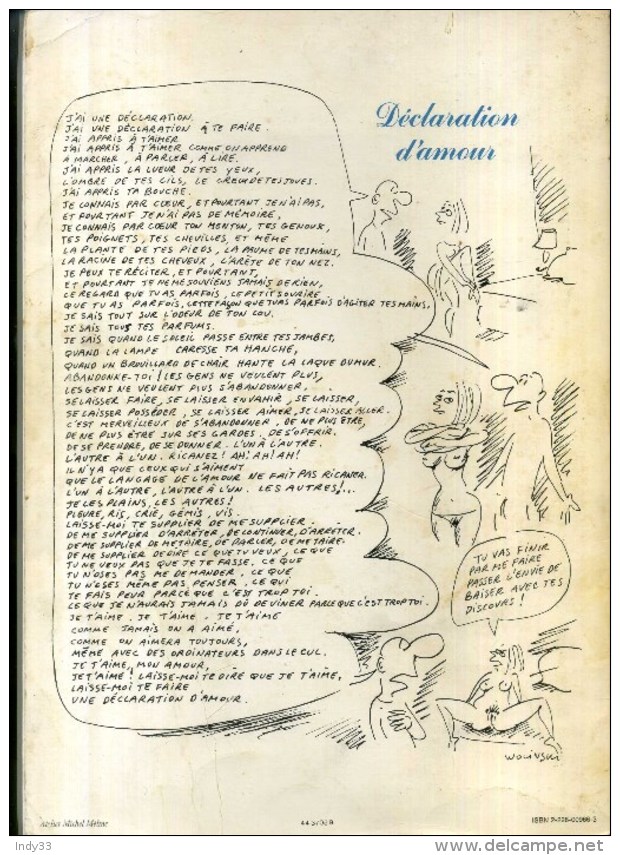 Déclaration
d'amour
J'AI UNE DÉCLARATION.
J'AI UNE DÉCLARATION À TE FAIRE.
J'AI APPRIS À T'AIMER
J'AI APPRIS À T'AIMER COMME ON APPREND
À MARCHER, À PARLER, À LIRE.
J'AI APPRIS LA LUEUR DE TES YEUX,
L'OMBRE DE TES CILS, LE CREUX DE TES JOUES.
J'AI APPRIS TA BOUCHE.
JE CONNAIS PAR CŒUR, ET POURTANT JE N'AI PAS,
ET POURTANT JE N'AI PAS DE MÉMOIRE,
JE CONNAIS PAR CŒUR TON MENTON, TES GENOUX,
TES POIGNETS, TES CHEVILLES ET MÊME
LA PLANTE DE TES PIEDS, LA PAUME DE TES MAINS,
LA RACINE DE TES CHEVEUX, L'ARÊTE DE TON NEZ.
JE PEUX TE RÉCITER, ET POURTANT,
ET POURTANT JE NE ME SOUVIENS JAMAIS DE RIEN,
LE REGARD QUE TU AS PARFOIS, LE PETIT SOURIRE
QUE TU AS PARFOIS, CETTE FAÇON QUE TU AS PARFOIS D'AGITER TES MAINS,
JE SAIS TOUT SUR L'ODEUR DE TON COU.
JE SAIS TOUS TES PARFUMS.
JE SAIS QUAND LE SOLEIL PASSE ENTRE TES JAMBES,
QUAND LA LAMPE CARESSE TA HANCHE,
QUAND UN BROUILLARD DE CHAIR HANTE LA LAQUE DU MUR.
ABANDONNE-TOI! LES GENS NE VEULENT PLUS,
LES GENS NE VEULENT PLUS S'ABANDONNER.
SE LAISSER FAIRE, SE LAISSER ENVAHIR, SE LAISSER,
SE LAISSER POSSÉDER, SE LAISSER AIMER, SE LAISSER ALLER.
C'EST MERVEILLEUX DE S'ABANDONNER, DE NE PLUS ÊTRE,
DE NE PLUS ÊTRE SUR SES GARDES. DE S'OFFRIR.
DE SE PRENDRE, DE SE DONNER. L'UN À L'AUTRE.
L'AUTRE À L'UN. RICANEZ! AH! AH! AH!
IL N'Y A QUE CEUX QUI S'AIMENT
QUE LE LANGAGE DE L'AMOUR NE FAIT PAS RICANER.
L'UN À L'AUTRE, L'AUTRE À L'UN. LES AUTRES!...
JE LES PLAINS, LES AUTRES!
PLEURE, RIS, CRIE, GÉMIS, VIS.
LAISSE-MOI TE SUPPLIER DE ME SUPPLIER.
DE ME SUPPLIER D'ARRÊTER, DE CONTINUER, D'ARRÊTER.
DE ME SUPPLIER DE ME TAIRE, DE PARLER, DE ME TAIRE.
DE ME SUPPLIER DE DIRE CE QUE TU VEUX, CE QUE
TU NE VEUX PAS QUE JE TE FASSE. CE QUE
TU N'OSES PAS ME DEMANDER. CE QUE
TU N'OSES MÊME PAS PENSER. CE QUI
TE FAIS PEUR PARCE QUE C'EST TROP TOI.
CE QUE JE N'AURAIS JAMAIS DÛ DEVINER PARCE QUE C'EST TROP TOI.
JE T'AIME. JE T'AIME. JE T'AIME
COMME JAMAIS ON A AIMÉ,
COMME ON AIMERA TOUJOURS,
MÊME AVEC DES ORDINATEURS DANS LE CUL.
JE T'AIME, MON AMOUR,
JE T'AIME! LAISSE-MOI TE DIRE QUE JE T'AIME,
LAISSE-MOI TE FAIRE
UNE DÉCLARATION D'AMOUR.
TU VAS FINIR
PAR ME FAIRE
PASSER L'ENVIE DE
BAISER AVEC TES
DISCOURS!
WOLINSKI
Atelier Michel Méline
© Indy33
delcampe.net